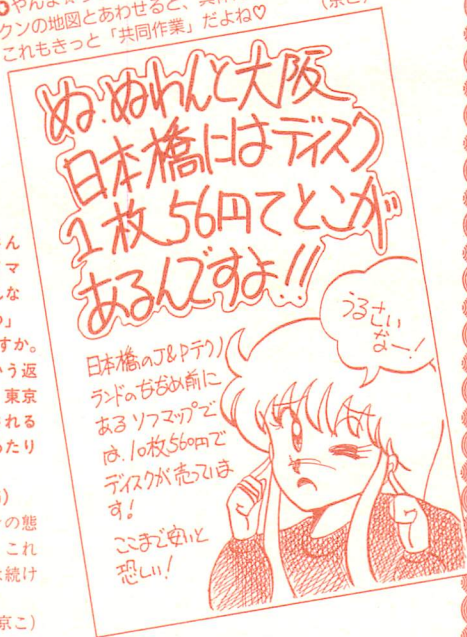 やんま
クンの地図とあわせると、
これもきっと「共同作業」だよね♡
ぬ、ぬわんと大阪
日本橋にはディスク
1枚56円てとこが
あるんですよ!!
うるさい
なー!
日本橋のJ&Pテクノ
ランドのななめ前に
あるソフマップで
は、10枚560円で
ディスクが売っていま
す!
ここまで安いと
恐しい!
ん
マ
な
」
すか。
う返
東京
れる
ったり
)
の態
これ
続け
京こ)